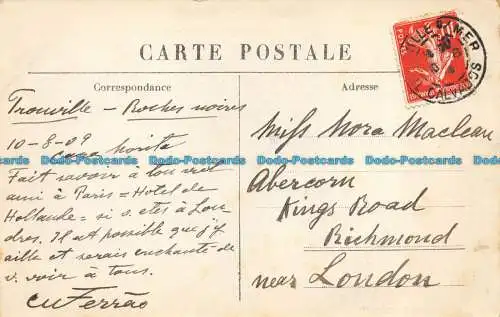 CARTE POSTALE
Correspondance
Adresse
Trouville - Roches noires
10-8-09
Fait savoir à ton vieil
ami à Paris = Hotel de
Hollande = si v. etes à Lon
dres. Il est possible que j'y
aille et serais enchanté de
v. voir à tous.
Ferrão
Miss Nora Maclean
Abercorn
Kings Road
Richmond
near London
POSTES
CALVADOS
Dodo-Postcards Dodo-Postcards Dodo-Postcards Dodo-Postcards